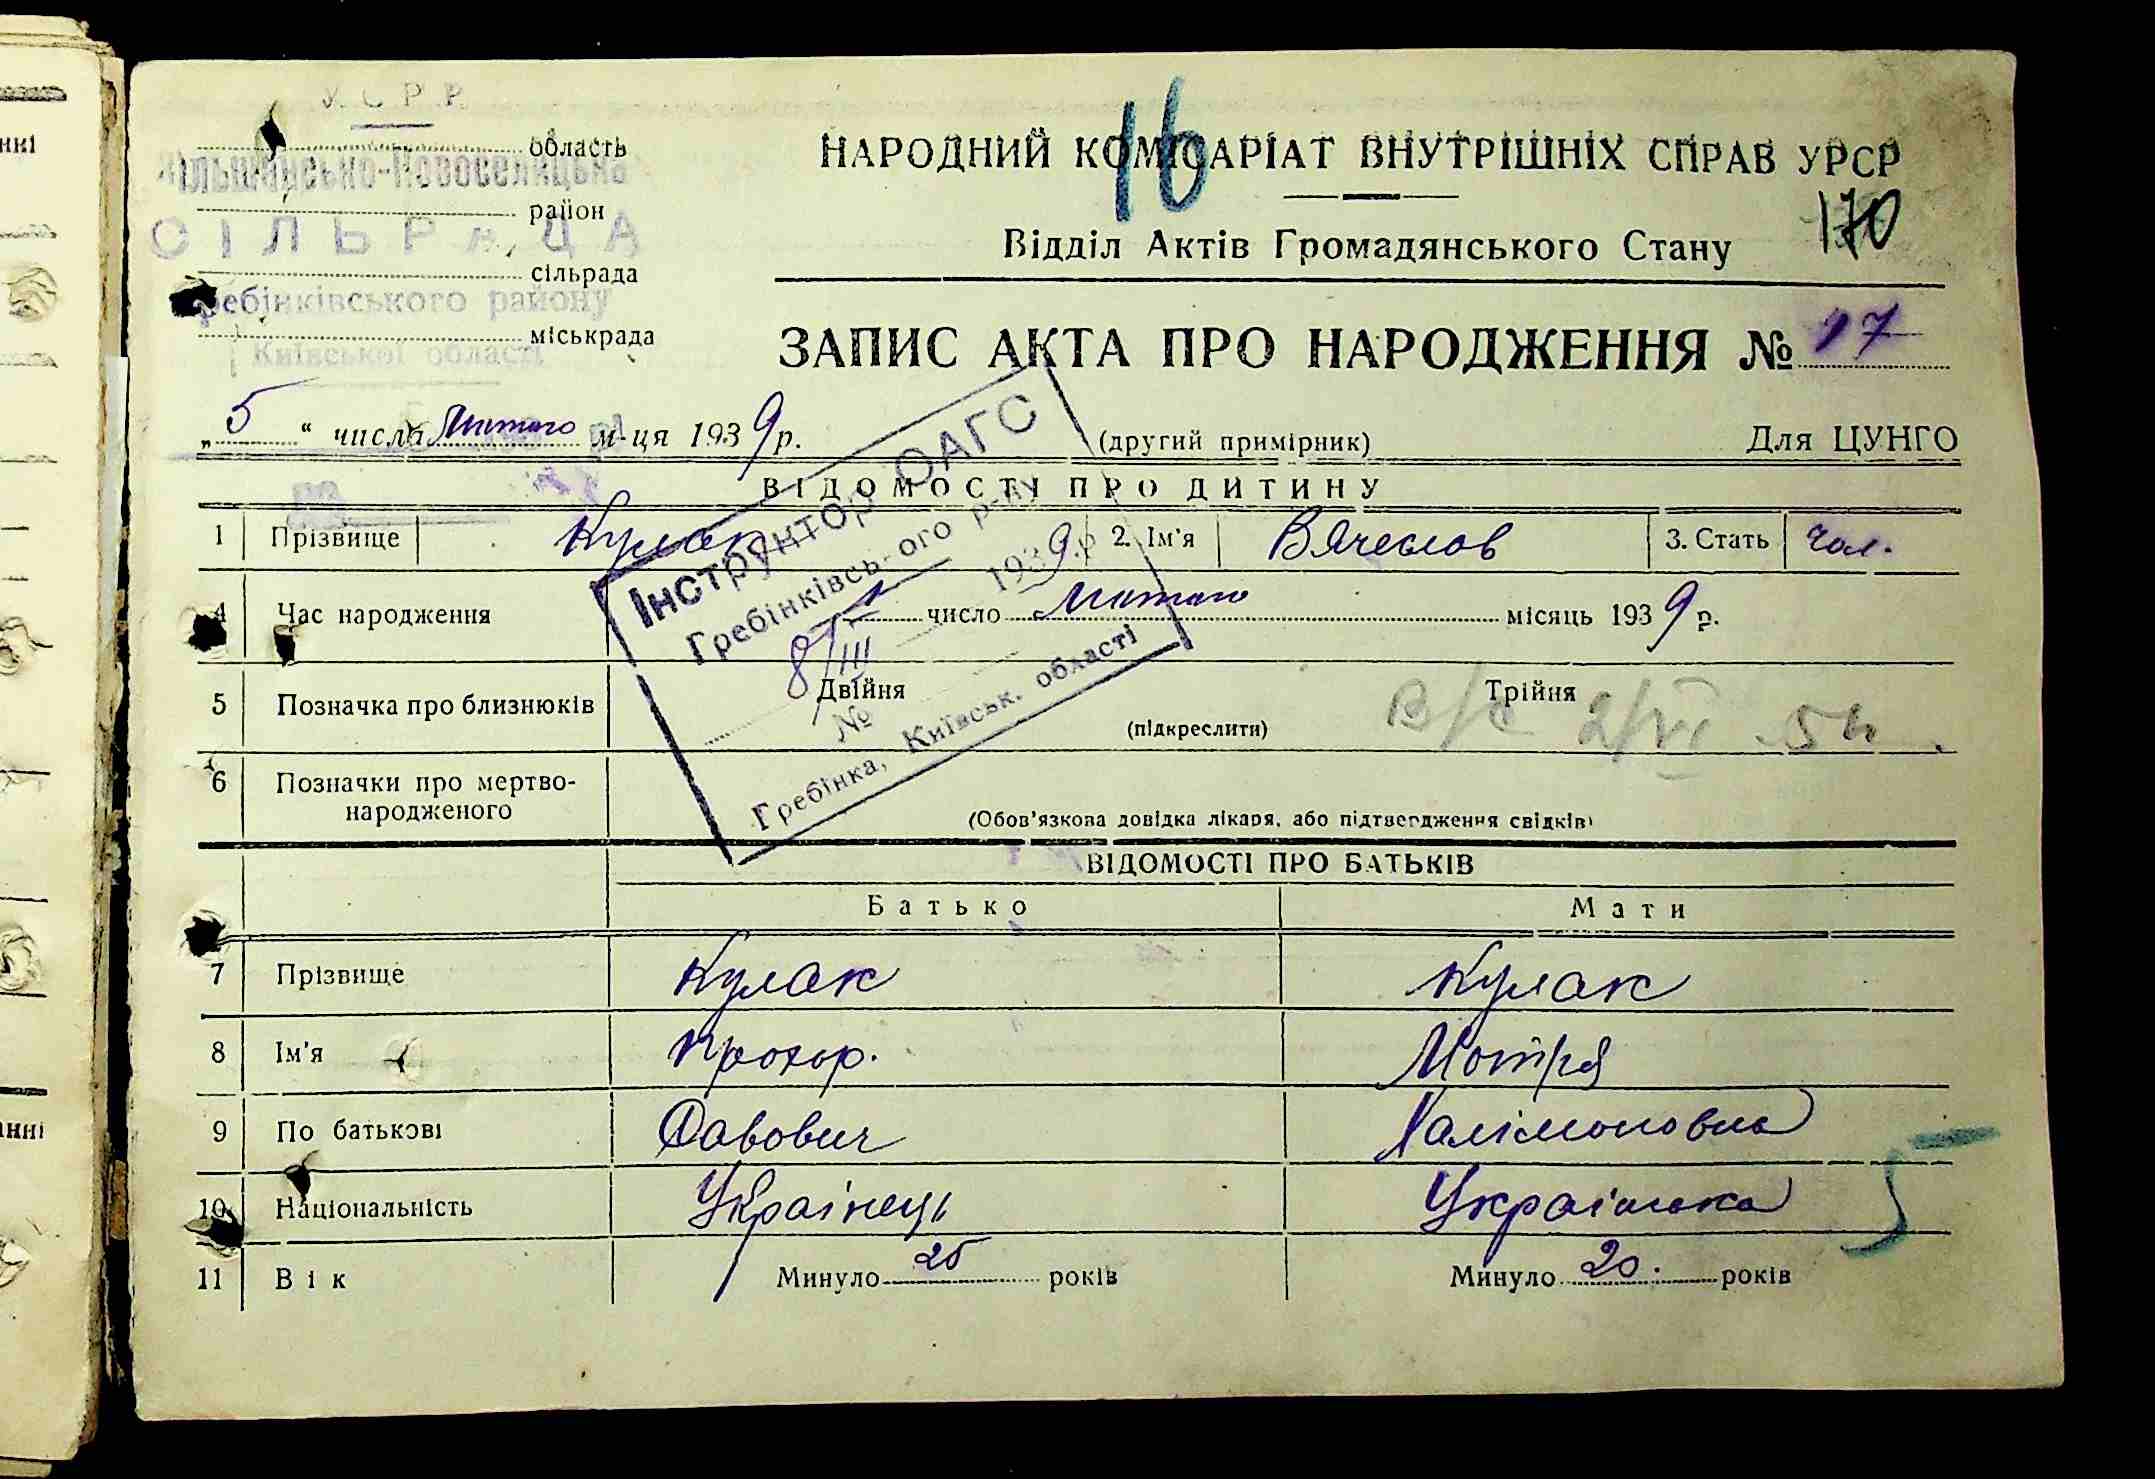 У.С.Р.Р.
область
Вільшансько-Новоселицька
район
СІЛЬРАДА
сільрада
Гребінківського району
міськрада
Київської області
16
НАРОДНИЙ КОМІСАРІАТ ВНУТРІШНІХ СПРАВ УРСР
170
Відділ Актів Громадянського Стану
ЗАПИС АКТА ПРО НАРОДЖЕННЯ № 17
„5“ числа Лютого м-ця 1939 р.
(другий примірник)
Для ЦУНГО
ВІДОМОСТІ ПРО ДИТИНУ
1 Прізвище Кулак 2. Ім'я Вячеслов 3. Стать Чол.
Інструктор ОАГС
Гребінківсь-ого р-ну
8/III 1939 р
№
Гребінка, Київськ. області
4 Час народження 1 число Лютого місяць 1939 р.
5 Позначка про близнюків Двійня Трійня
(підкреслити)
В/с 2/VI 54.
6 Позначки про мертво-
народженого
(Обов'язкова довідка лікаря, або підтвердження свідків)
ВІДОМОСТІ ПРО БАТЬКІВ
Батько Мати
7 Прізвище Кулак Кулак
8 Ім'я Прохор. Мотря
9 По батькові Савович Халімоновна
10 Національність Українець Українка
5
11 Вік Минуло 25 років Минуло 20. років